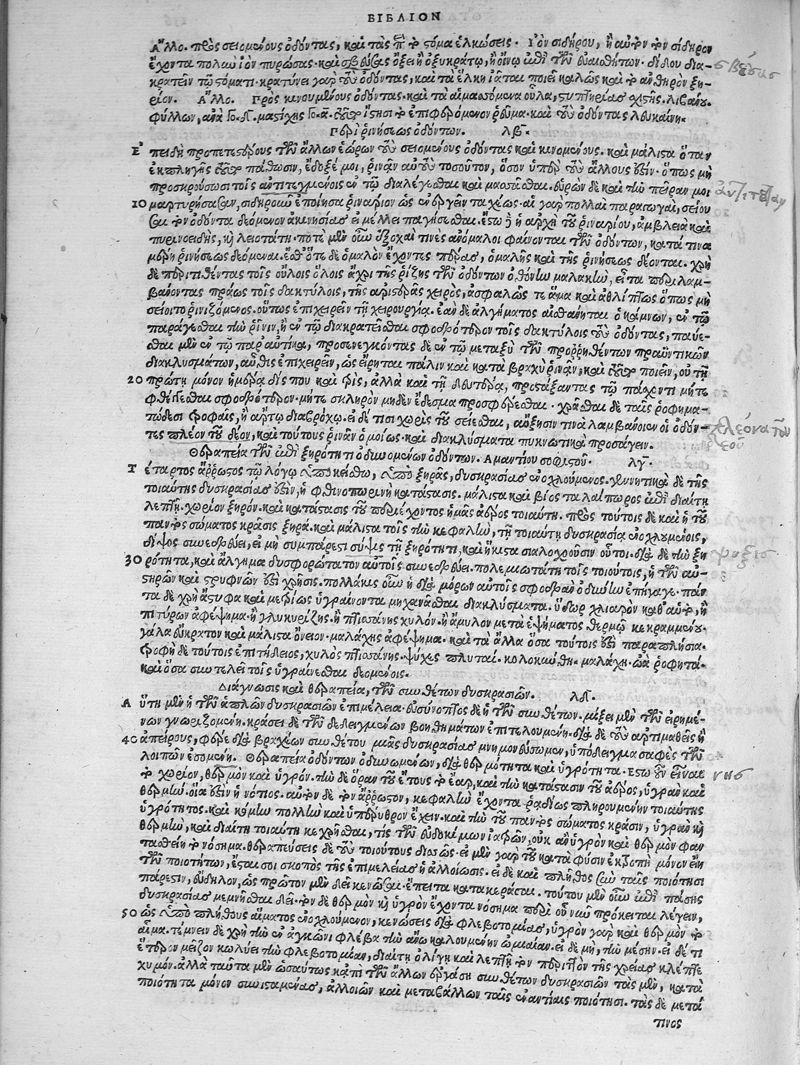 ΒΙΒΛΙΟΝ
Ἄλλο. πρὸς σειομένους ὀδόντας, καὶ τὰς στόμα ἑλκώσεις. Ἰὸν σιδήρου, ἢ αὐτὸν τὸν σίδηρον
ἔχοντα πολὺν ἰὸν πυρώσας καὶ σβέσας ὄξει ἢ ὀξυκράτῳ, ἢ οἴνῳ ἐπὶ τῶν εὐπαθῶν. δίδου δια-
κρατεῖν τῷ στόματι. κρατύνει γὰρ τοὺς ὀδόντας, καὶ τὰ ἕλκη ἰᾶται ποιεῖ καλῶς καὶ τὸ ἀνθηρὸν ξη-
ρίον. Ἄλλο. Πρὸς κινουμένους ὀδόντας. καὶ τὰ αἱμασσόμενα οὖλα, στυπτηρίας σχιστῆς, λιβάνου.
φύλλων, ἀνὰ μαστίχης ἵστησι τὸ ἐπιφερόμενον ῥεῦμα. καὶ τοὺς ὀδόντας λευκαίνει.
Περὶ ῥινήσεως ὀδόντων. λβ.
Ἐπειδὴ προπετεστέρους τῶν ἄλλων ἑώρων τοὺς σειομένους ὀδόντας καὶ κινουμένους. καὶ μάλιστα ὅταν
ἐκ πληγῆς τοῦτο πάθωσιν, ἔδοξέ μοι, ῥινᾶν αὐτοὺς τοσοῦτον, ὅσον ὑπὲρ τοὺς ἄλλους εἰσίν. ὅπως μὴ
προσκρούσωσι τοῖς ἀντιτεγμένοις ἐν τῷ διαλέγεσθαι καὶ μασᾶσθαι. εὑρὼν δὲ καὶ τὴν πεῖραν μοι
10 μαρτυρήσασαν, σιδηροῦν ἐποίησα ῥινάριον ὡς ἐνεργεῖν ταχέως. αἱ γὰρ πολλαὶ παραγωγαί, σείου-
σαι τὸν ὀδόντα δεόμενον ἀκινησίας εἰ μέλλει παγήσεσθαι. ἔστω δὲ ἡ ἀρχὴ τοῦ ῥιναρίου, ἀμβλεῖα καὶ
πυρινοειδής, καὶ λειοτάτη. ποτὲ μὲν οὖν ἐξοχαί τινες ἀνόμαλοι φαίνονται τῶν ὀδόντων, κατά τινα
μέρη ῥινήσεως δεόμεναι. ἔσθ' ὅτε δὲ ὁμαλὸν ἔχοντες πέρας, ὁμαλῆς καὶ τῆς ῥινήσεως δέονται. χρὴ
δὲ περιτιθέντας τοῖς οὔλοις ὅλοις ἄχρι τῆς ῥίζης τῶν ὀδόντων ὀθόνιον μαλακόν, εἶτα περιλαμ-
βάνοντας πράως τοῖς δακτύλοις, τῆς ἀριστερᾶς χειρός, ἀσφαλῶς τε ἅμα καὶ ἀθλίπτως ὅπως μὴ
σείοιτο ῥινιζόμενος. οὕτως ἐπιχειρεῖν τῇ χειρουργίᾳ. ἐὰν δὲ ἀλγήματος αἰσθάνηται ὁ κάμνων, ἐν τῷ
παράγεσθαι τὴν ῥίνην, ἢ ἐν τῷ διακρατεῖσθαι σφοδρότερον τοῖς δακτύλοις τοὺς ὀδόντας, παύε-
σθαι μὲν ἐν τῷ παραυτίκα, προσενεγκόντας δὲ ἐν τῷ μεταξὺ τῶν προρρηθέντων πραϋντικῶν
διακλυσμάτων, αὖθις ἐπιχειρεῖν, ὡς εἴρηται πάλιν καὶ κατὰ βραχὺ ῥινᾶν, καὶ τοῦτο ποιεῖν, οὐ τῇ
20 πρώτῃ μόνον ἡμέρᾳ δίς που καὶ τρίς, ἀλλὰ καὶ τῇ δευτέρᾳ, προστάξαντας τῷ πάσχοντι μήτε
φθέγγεσθαι σφοδρότερον. μήτε σκληρὸν μηδὲν ἔδεσμα προσφέρεσθαι. χρᾶσθαι δὲ ταῖς ῥοφημα-
τώδεσι τροφαῖς, ἢ ἄρτῳ διαβρόχῳ. εἰ δέ τισι χωρὶς τοῦ σείεσθαι, αὔξησίν τινα λαμβάνοιεν οἱ ὀδόν-
τες πλέον τοῦ δέον, καὶ τούτους ῥινᾶν ὁμοίως. καὶ διακλύσματα πυκνωτικὰ προσάγειν.
Θεραπεία τῶν ἐπὶ ξηρότητι ὀδυνωμένων ὀδόντων. Ἀμαντίου σοφιστοῦ. λγ.
Τέταρτος ἄρρωστος τῷ λόγῳ ὑποκείσθω, ὑπὸ ξηρᾶς, δυσκρασίας ἐνοχλούμενος. γεννητικὴ δὲ τῆς
τοιαύτης δυσκρασίας ἐστίν, ἡ φθινοπωρινὴ κατάστασις. μάλιστα καὶ βίος ταλαίπωρος ἐπὶ διαίτῃ
λεπτῇ. χωρίον ξηρόν. καὶ κατάστασις τοῦ περιέχοντος ἡμᾶς ἀέρος τοιαύτη. πρὸς τούτοις δὲ καὶ ἡ τοῦ
παντὸς σώματος κρᾶσις ξηρά. καὶ μάλιστα τοῖς τὴν κεφαλήν, τῇ τοιαύτῃ δυσκρασίᾳ ἐνοχλουμένοις,
δίψος συνεδρεύει, εἰ μὴ συμπάρεστι ψύξις τῇ ξηρότητι, καὶ ἥκιστα σιαλοχοοῦσιν οὗτοι. διὰ δὲ τὴν ξη-
30 ρότητα, καὶ ἄλγημα δυσφορώτατον αὐτοῖς συνεδρεύει. πολεμιωτάτη τοῖς τοιούτοις, ἡ τῶν αὐ-
στηρῶν καὶ στρυφνῶν ἐστι χρῆσις. πολλάκις οὖν ἡ διὰ μόρων αὐτοῖς σφοδρὰν ὀδύνην ἐπήγαγε. πάν-
τα δὲ χρὴ ἄστυφα καὶ μετρίως ὑγραίνοντα μηχανᾶσθαι διακλύσματα. ὕδωρ χλιαρὸν καθ' αὑτό, ἢ
πιτύρων ἀφέψημα. ἢ γλυκυρρίζης. ἢ πτισάνης χυλόν. ἢ ἄμυλον μετὰ ἑψήματος θερμῷ κεκραμένου.
γάλα εὔκρατον καὶ μάλιστα ὄνειον. μαλάχης ἀφέψημα. καὶ τὰ ἄλλα ὅσα τούτοις ἐστὶ παραπλήσια.
τροφὴ δὲ τούτοις ἐπιτήδειος, χυλὸς πτισάνης. ψίχες πλυταί. κολοκύνθη. μαλάχη. ὠὰ ῥοφητά.
καὶ ὅσα συντελεῖ τοῖς ὑγραίνεσθαι δεομένοις.
Διάγνωσις καὶ θεραπεία, τῶν συνθέτων δυσκρασιῶν. λδ.
Αὕτη μὲν ἡ τῶν ἁπλῶν δυσκρασιῶν ἐπιμέλεια. εὐσύνοπτος δὲ ἡ τῶν συνθέτων. μίξει μὲν τῶν εἰρημέ-
νων γνωριζομένη. κράσει δὲ τῶν δεδειγμένων βοηθημάτων ἐπιτελουμένη. διὰ δὲ τοὺς ἀρτιμαθεῖς ἢ
40 ἀπείρους, φέρε διὰ βραχέων συνθέτου μιᾶς δυσκρασίας μνημονεύσωμεν, ὑπόδειγμα σαφὲς τῶν
λοιπῶν ἐσομένην. Θεραπεία ὀδόντων ὀδυνωμένων, διὰ θερμότητα καὶ ὑγρότητα. ἔστω οὖν εἶναι
τὸ χωρίον, θερμὸν καὶ ὑγρόν. τὴν δὲ ὥραν τοῦ ἔτους τὸ ἔαρ, καὶ τὴν κατάστασιν τοῦ ἀέρος, ὑγρὰν καὶ
θερμήν. οἵα ἐστὶν ἡ νότιος. αὐτὸν δὲ τὸν ἄρρωστον, κεφαλὴν ἔχοντα ῥᾳδίως πληρουμένην τοιαύτης
ὑγρότητος. καὶ κόμην πολλὴν καὶ ὑπέρυθρον ἔχειν. καὶ τὴν τοῦ παντὸς σώματος κρᾶσιν, ὑγρὰν καὶ
θερμήν, καὶ διαίτῃ τοιαύτῃ κεχρῆσθαι, τίς τῶν εὐδοκίμων ἰατρῶν, οὐκ ἂν ὑγρὸν καὶ θερμὸν φαν-
τασθείη τὸ νόσημα. θεραπεύσεις δὲ τοὺς τοιούτους δισσῶς. εἰ μὲν γὰρ τοῦ κατὰ φύσιν ἐκβαίη μόνον ἐπὶ
τῶν ποιοτήτων, ἔσται σοι σκοπὸς τῆς ἐπιμελείας ἡ ἀλλοίωσις. εἰ δὲ καὶ πλῆθος σὺν ταῖς ποιότησι
πάρεστιν, εὔδηλον, ὡς πρῶτον μὲν δεῖ κενῶσαι. ἔπειτα κατακεράσαι. τούτου μὲν οὖν ἐπὶ πάσης
δυσκρασίας μεμνῆσθαι δεῖ. τὸν δὲ θερμὸν καὶ ὑγρὸν ἔχοντα νόσημα περὶ οὗ νῦν πρόκειται λέγειν,
50 ὡς ὑπὸ πλήθους αἵματος ἐνοχλούμενον, κενώσεις διὰ φλεβοτομίας, ὑγρὸν γὰρ καὶ θερμὸν τὸ
αἷμα. τέμνειν δὲ χρὴ τὴν ἐν ἀγκῶνι φλέβα τὴν ἄνω καλουμένην ὠμιαίαν. εἰ δὲ μή, τὴν μέσην. εἰ δέ τι
ἕτερον μεῖζον κωλύει τὴν φλεβοτομίαν, διαίτῃ ὀλίγῃ καὶ λεπτῇ τὸν περιττὸν τῆς χρείας κλέπτε
χυμόν. ἀλλὰ ταῦτα μὲν ὡσαύτως κἀπὶ τῶν ἄλλων ἐργάσῃ συνθέτων δυσκρασιῶν τὰς μέν, κατὰ
ποιότητα μόνον συνισταμένας, ἀλλοιῶν καὶ μεταβάλλων ταῖς ἐναντίαις ποιότησι. τὰς δὲ μετά
τινος
σβέσας
πλέονα τοῦ
δέοντος
ψύξις